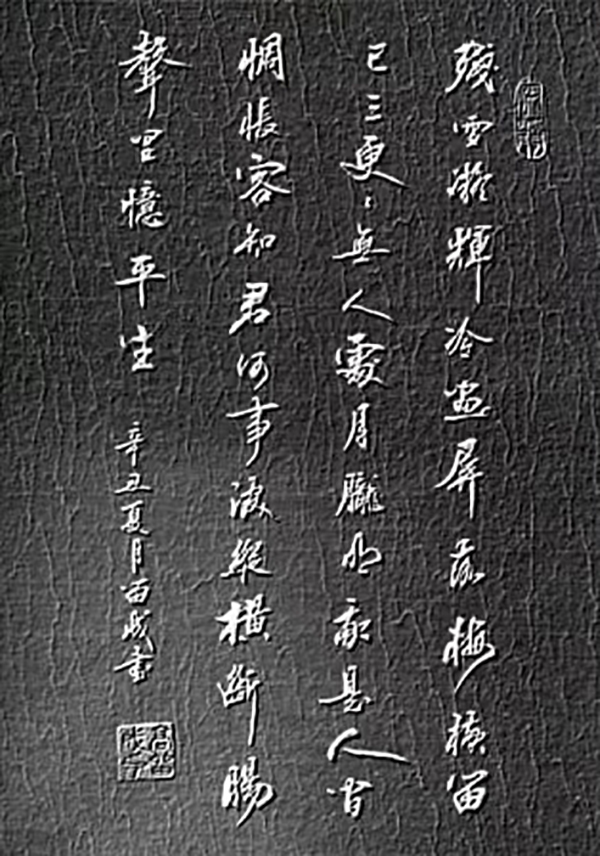 殘雪凝輝冷畫屏落梅橫笛
已三更〻無人處月朧明我是人间
惆悵客知君何事淚縱橫斷腸
聲里憶平生
辛丑夏月書